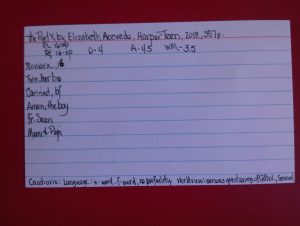 The Poet X by Elizabeth Acevedo. HarperTeen, 2018, 357 p.
RL 14-up
IL 14-up Q-4 A-4.5 WM-3.5
Xiomara, 16
Twin, her bro
Caridad, bf
Aman, the boy
Fr. Sean
Mami & Papi
Cautions: Language: s-word, f-word, no profanity. Worldview: serious questioning of God,